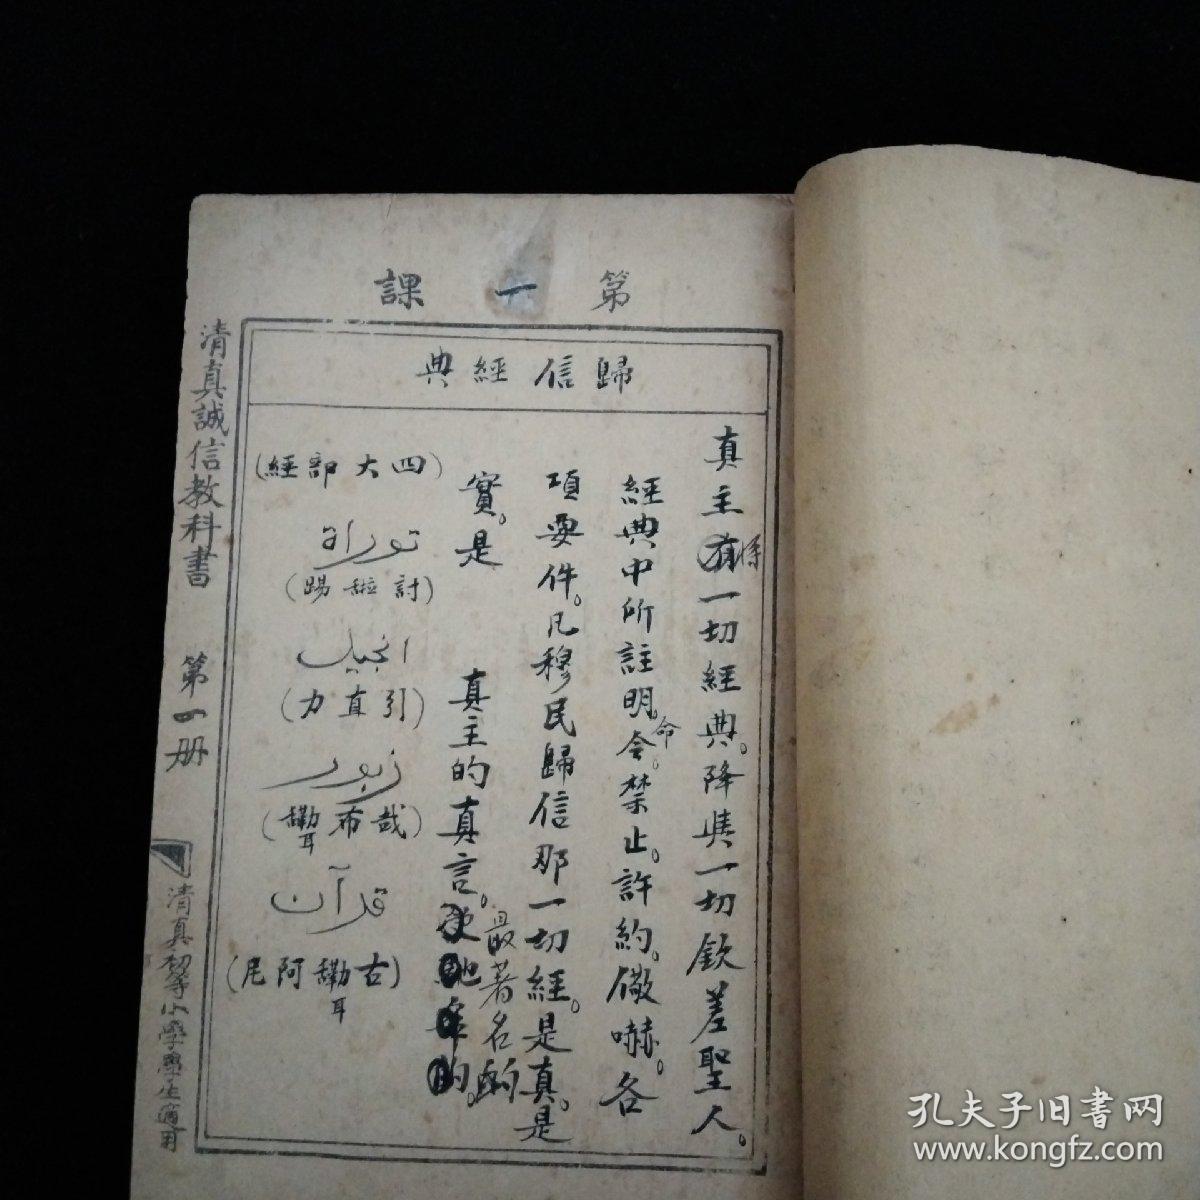 第一課
歸信經典
真主有一切經典。降與一切欽差聖人。
係
經典中所註明。令。禁止。許約。儆嚇。各
命
項要件。凡穆民歸信那一切經。是真。是
實。是 真主的真言。
最著名的
(四大部經)
توراة
(討䚳踢)
انجيل
(引直力)
زبور
(哉布嘞耳)
قرآن
(古嘞耳阿尼)
清真誠信教科書 第一册
清真初等小學學生適用
孔夫子旧书网
www.kongfz.com